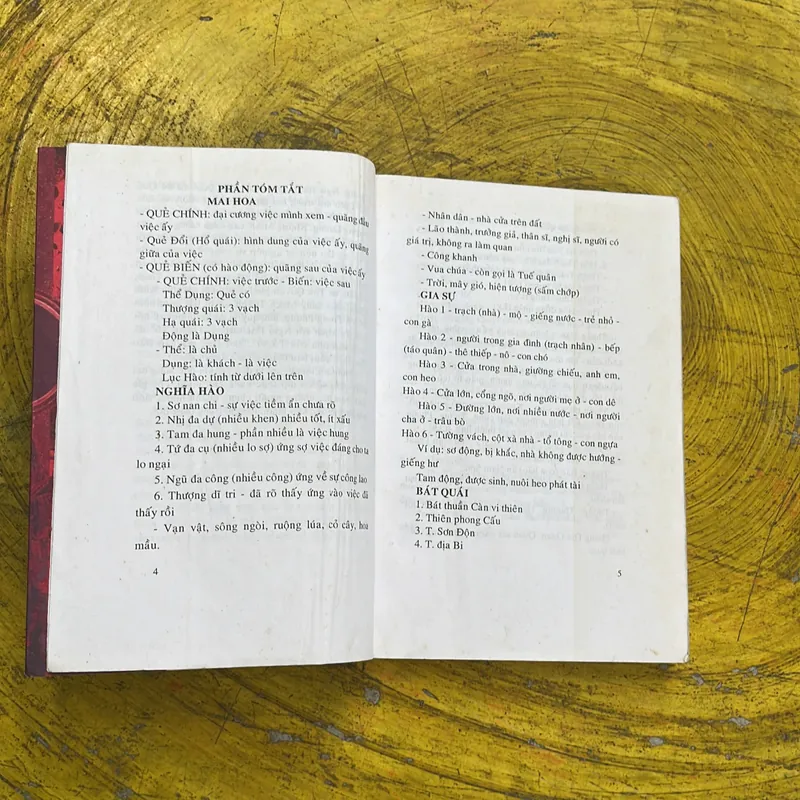 PHẦN TÓM TẮT
MAI HOA
- QUẺ CHÍNH: đại cương việc mình xem - quãng đầu
việc ấy
- Quẻ Đổi (Hổ quái): hình dung của việc ấy, quãng
giữa của việc
- QUẺ BIẾN (có hào động): quãng sau của việc ấy
- QUẺ CHÍNH: việc trước - Biến: việc sau
Thể Dụng: Quẻ có
Thượng quái: 3 vạch
Hạ quái: 3 vạch
Động là Dụng
- Thể: là chủ
Dụng: là khách - là việc
Lục Hào: tính từ dưới lên trên
NGHĨA HÀO
1. Sơ nan chi - sự việc tiềm ẩn chưa rõ
2. Nhị đa dự (nhiều khen) nhiều tốt, ít xấu
3. Tam đa hung - phần nhiều là việc hung
4. Tứ đa cụ (nhiều lo sợ) ứng sợ việc đáng cho ta
lo ngại
5. Ngũ đa công (nhiều công) ứng về sự công lao
6. Thượng dĩ tri - đã rõ thấy ứng vào việc đã
thấy rồi
- Vạn vật, sông ngòi, ruộng lúa, cỏ cây, hoa
mầu.
4
- Nhân dân - nhà cửa trên đất
- Lão thành, trưởng giả, thân sĩ, nghị sĩ, người có
giá trị, không ra làm quan
- Công khanh
- Vua chúa - còn gọi là Tuế quân
- Trời, mây gió, hiện tượng (sấm chớp)
GIA SỰ
Hào 1 - trạch (nhà) - mộ - giếng nước - trẻ nhỏ -
con gà
Hào 2 - người trong gia đình (trạch nhân) - bếp
(táo quân) - thê thiếp - nô - con chó
Hào 3 - Cửa trong nhà, giường chiếu, anh em,
con heo
Hào 4 - Cửa lớn, cổng ngõ, nơi người mẹ ở - con dê
Hào 5 - Đường lớn, nơi nhiều nước - nơi người
cha ở - trâu bò
Hào 6 - Tường vách, cột xà nhà - tổ tông - con ngựa
Ví dụ: sơ động, bị khắc, nhà không được hưởng -
giếng hư
Tam động, được sinh, nuôi heo phát tài
BÁT QUÁI
1. Bát thuần Càn vi thiên
2. Thiên phong Cấu
3. T. Sơn Độn
4. T. địa Bỉ
5